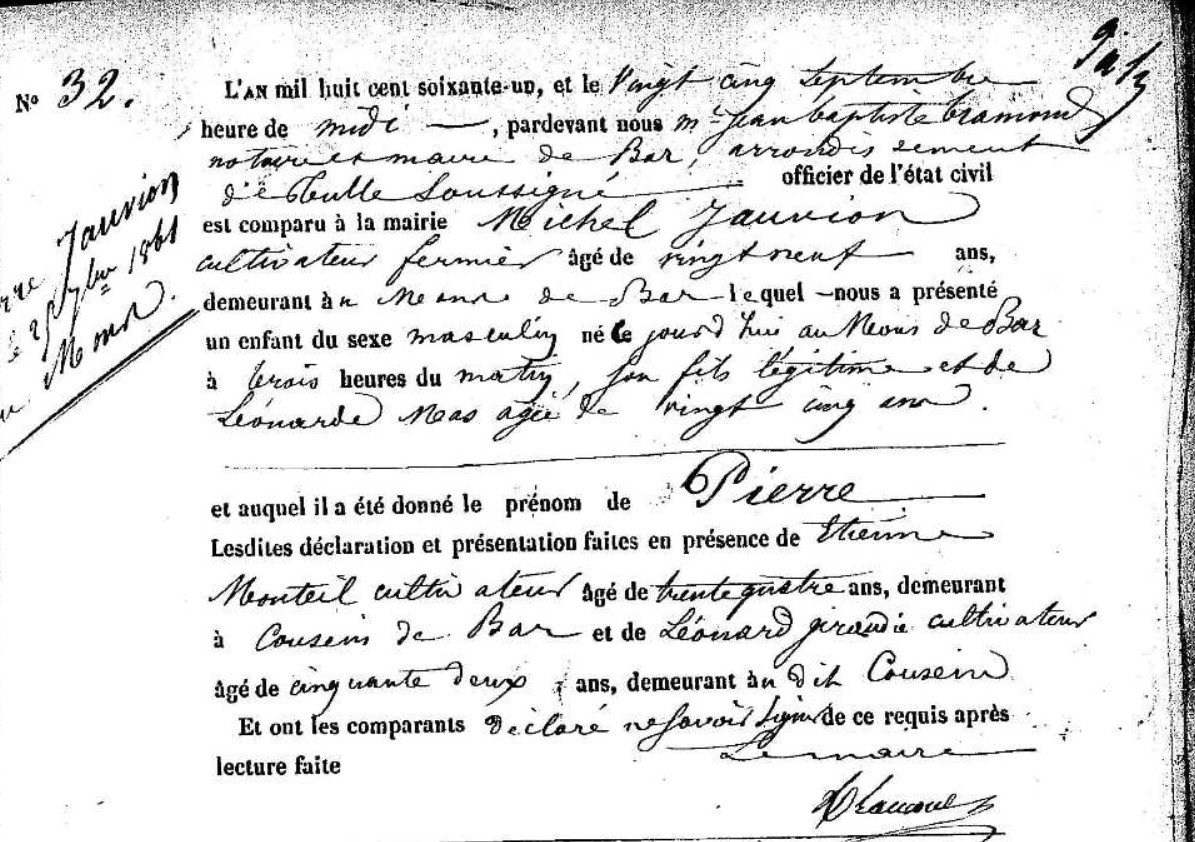 N° 32.
Jauvion
1861
L'AN mil huit cent soixante-un, et le Vingt cinq Septembre
heure de midi —, pardevant nous mr Jean baptiste bramond
notaire et maire de Bar, arrondissement
de Tulle Soussigné officier de l'état civil
est comparu à la mairie Michel Jauvion
cultivateur fermier âgé de vingt neuf ans,
demeurant àu de Bar lequel nous a présenté
un enfant du sexe masculin né ce jourd'hui au de Bar
à trois heures du matin, son fils légitime et de
Léonarde Mas agée de vingt cinq ans.
et auquel il a été donné le prénom de Pierre
Lesdites déclaration et présentation faites en présence de Etienne
Monteil cultivateur âgé de trente quatre ans, demeurant
à Cousein de Bar et de Léonard giraudie cultivateur
âgé de cinquante deux ans, demeurant àu dit Cousein
Et ont les comparants déclaré ne savoir signer de ce requis après
lecture faite Le maire